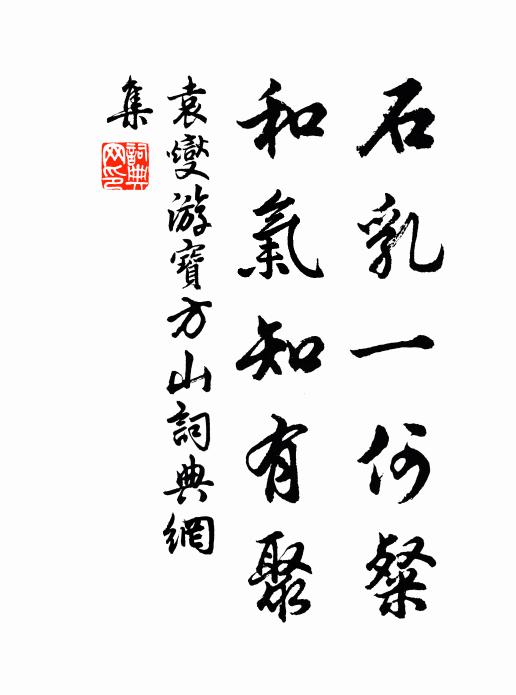 石乳一何粲
和氣知有聚
袁燮游寶方山詞典網
集
詞典網印